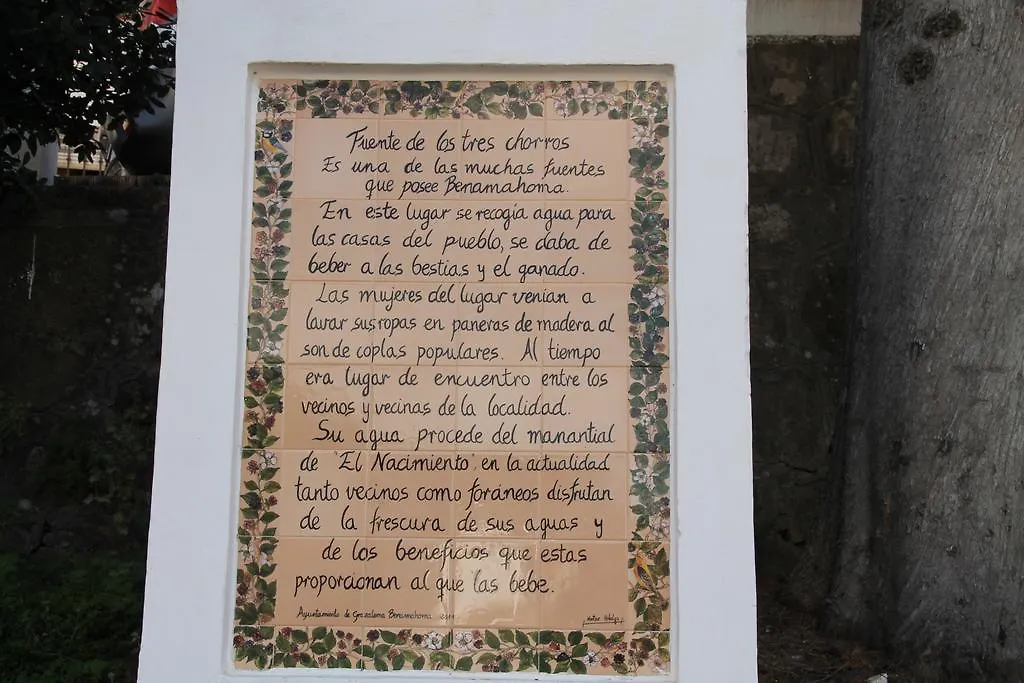 Fuente de los tres chorros
Es una de las muchas fuentes
que posee Benamahoma.
En este lugar se recogía agua para
las casas del pueblo, se daba de
beber a las bestias y el ganado.
Las mujeres del lugar venian a
lavar sus ropas en paneras de madera al
son de coplas populares. Al tiempo
era lugar de encuentro entre los
vecinos y vecinas de la localidad.
Su agua procede del manantial
de "El Nacimiento" en la actualidad
tanto vecinos como foráneos disfrutan
de la frescura de sus aguas y
de los beneficios que estas
proporcionan al que las bebe.
Ayuntamiento de Grazalema Benamahoma